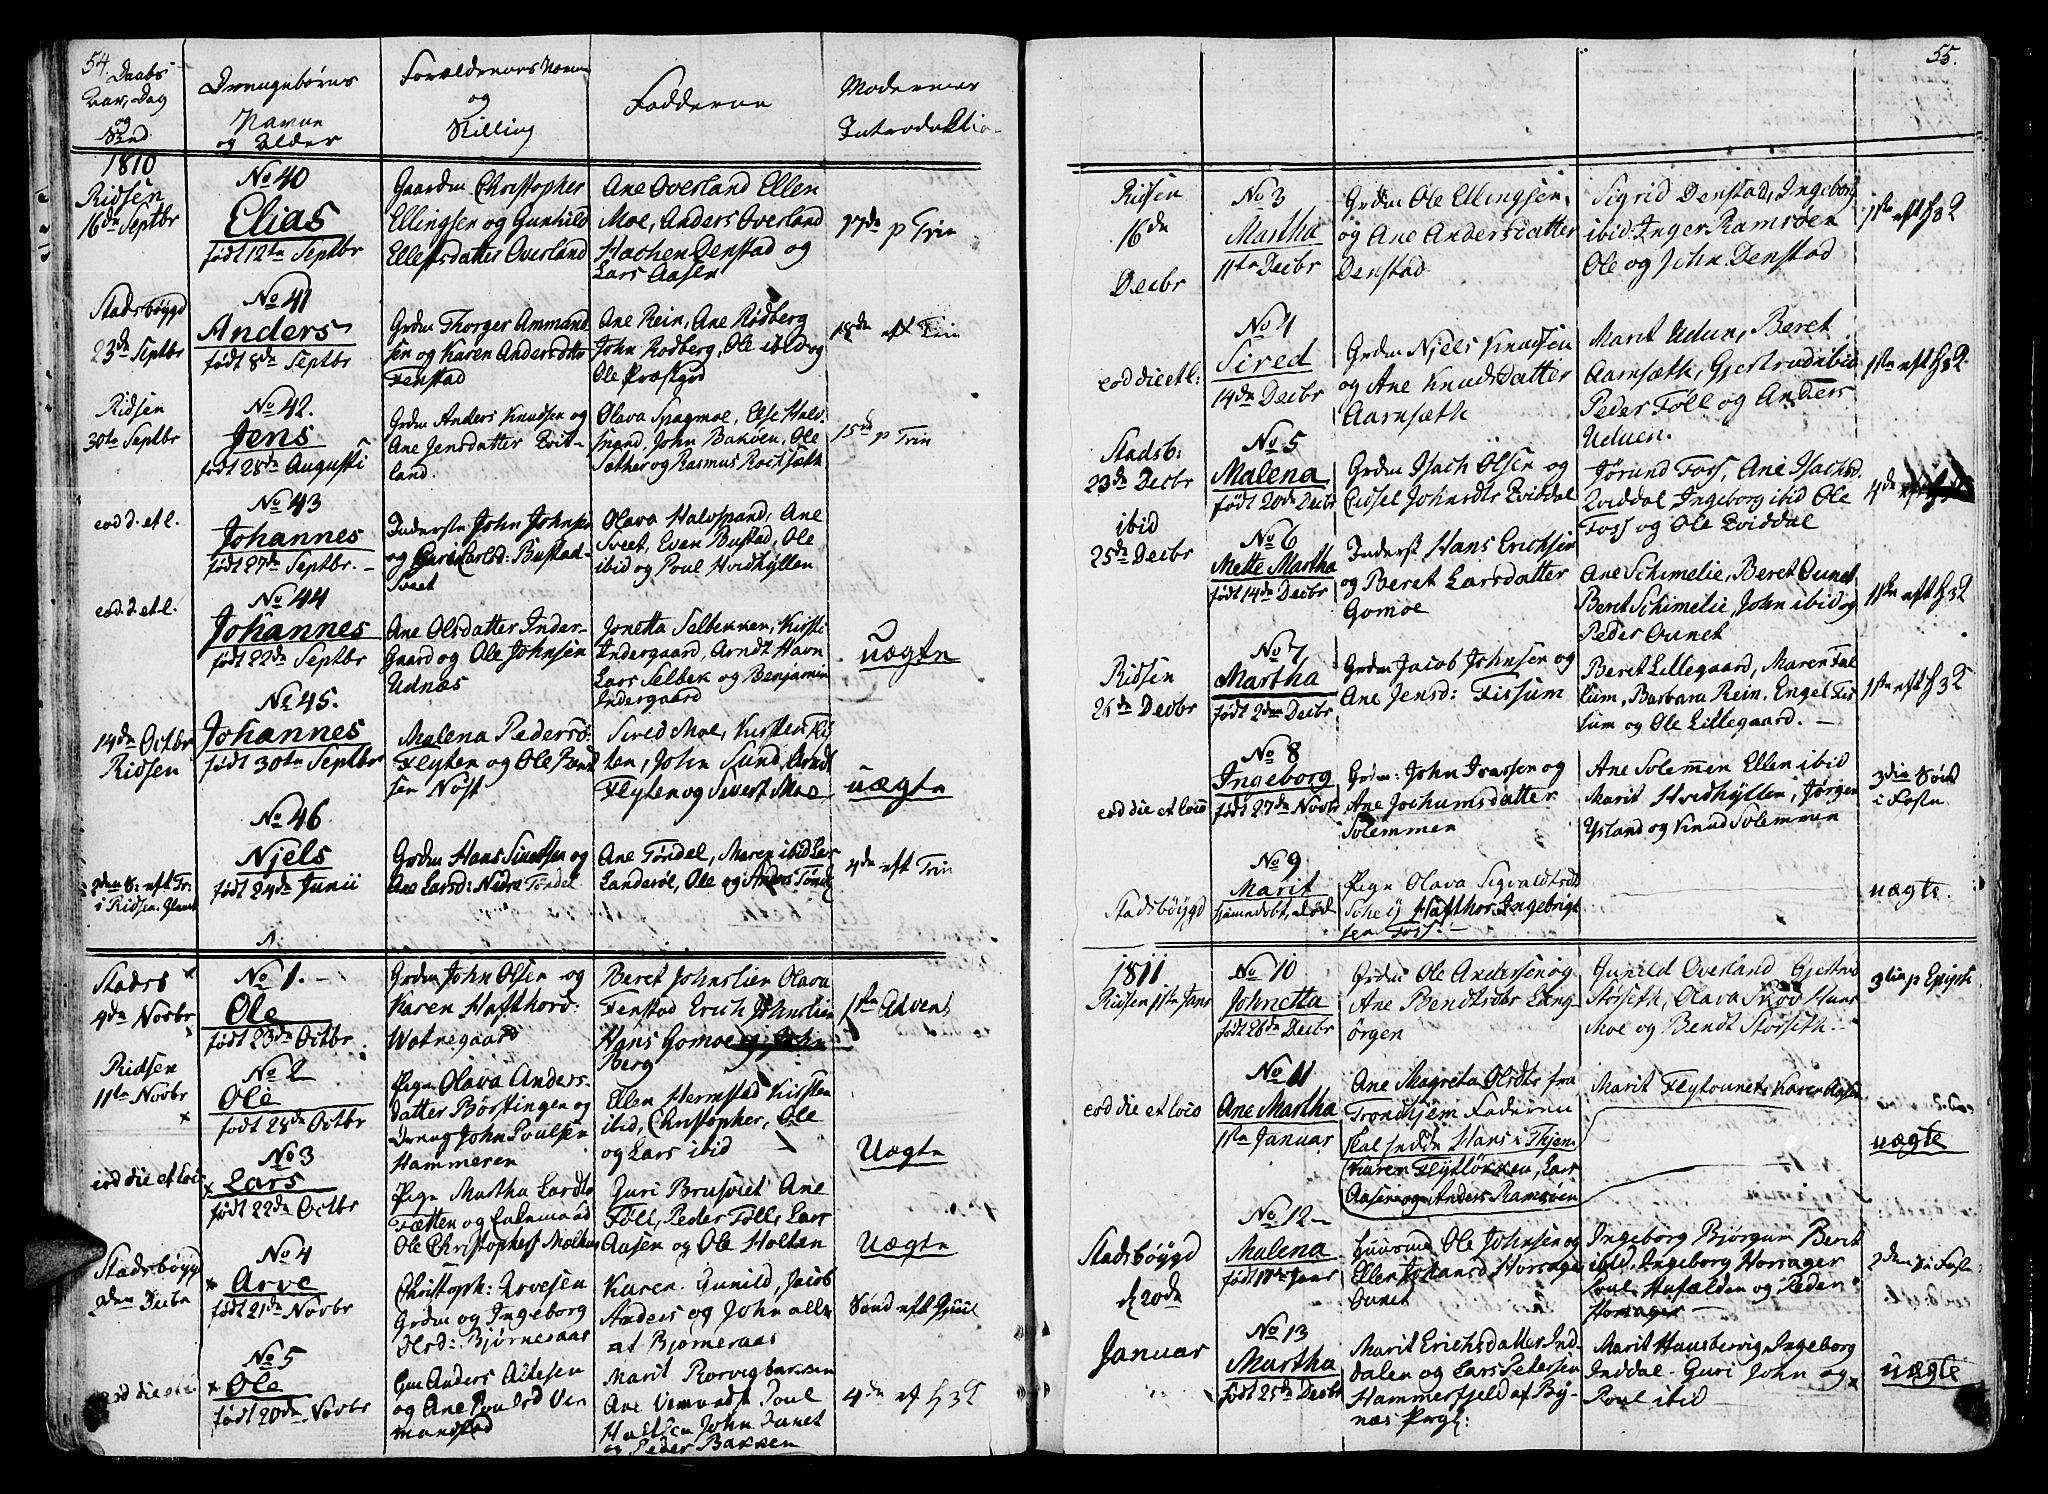 54.
Daabs
Aar, Dag
og
Sted
Drengebørns
Navne
og Alder
Forældrenes Navne
og
Stilling
Fadderne
Modernes
Introduktion
1810
Ridsen
16de Septbr
No 40
Elias
født 12te Septbr
Gaardm Christopher
Ellingsen og Gunhild
Ellefsdatter Overland
Ane Overland Ellen
Moe, Anders Overland
Hachen Denstad og
Lars Aasen
17de p Trin
Stadsbøygd
23de Septbr
No 41
Anders
født 8de Septbr
Grdm Thorger Ammund
sen og Karen Andersdttr
Fenstad
Ane Rein, Ane Rødberg
John Rødberg, Ole ibid og
Ole Præstgrd
18de eft Trin
Ridsen
30te Septbr
No 42.
Jens
født 28de Augusti
Grdm Anders Knudsen og
Ane Jensdatter Qvit-
land.
Olava Spagmoe, Else Halv
spand, John Bakøen, Ole
Sæther og Rasmus Rocksæth
15de p Trin
eod d. et l.
No 43
Johannes
født 27de Septbr.
Inderste John Johnsen
og Guri Carlsd: Bustad-
Sveet
Olava Halvspand, Ane
Sveet, Even Bustad, Ole
ibid og Poul Hvidhyllen
eod. d et l.
No 44
Johannes
født 22de Septbr
Ane Olsdatter Inder-
Gaard og Ole Johnsen
Udnæs
Jonetta Selbekken, Kirsti
Indergaard, Arndt Havn
Lars Selbek og Benjamin
Indergaard
uægte
14de Octbr
Ridsen
No 45.
Johannes
født 30te Septbr
Malena Pedersd.
Flyten og Ole Bendt
sen Nøst
Sired Moe, Kirsten Fly
ten, John Sund, Arndt
Flyten og Sivert Moe
uægte
i Ridsen
No 46
Njels
født 24de Junii
Grdm Hans Simensen og
Ane Larsd: Nedre Tøndel
Ane Tøndel, Maren ibid Lars
Landerøl, Ole og Anders Tøndel
4de eft Trin
Stadsb
4de Novbr
No 1.
Ole
født 23de Octbr
Grdm John Olsen og
Karen Hafthord:
Watnegaard
Beret Johnslien Olava
Fenstad Erich Johnslien
Hans Gomoe og John
Berg
1ste Advent
Ridsen
11te Novbr
No 2
Ole
født 28de Octbr
Pige Olava Anders-
datter Børstingen og
Dreng John Poulsen
Hammeren
Ellen Hermstad Kirsten
ibid, Christopher, Ole
og Lars ibid
Uægte
eod die et loco
No 3
Lars
født 22de Octbr
Pige Martha Larsdtr
Tætten og
Ole Christophers
Guri Brusvet Ane
Føll, Peder Føll, Lars
Aasen og Ole Holten
Uægte
Stadsbøygd
2den Decbr
No 4
Arve
født 21de Novbr
Christoph: Arvesen
Grdm og Ingeborg
Olsd: Bjørneraas
Karen, Gunild, Jacob
Anders og John alle
at Bjørneraas
Sønd eft Juul
eod die et l.
No 5
Ole
født 20de Novbr
Anders Aidesen
og Ane Poulsd Ver
mundstad
Marit Rorvigbakken
Ane Vermundst Poul
John Ounet
og Peder Bakken
4de ef H3K
55.
Ridsen
16de
Decbr
No 3
Martha
11te Decbr
Grdm Ole Ellingsen,
og Ane Andersdatter
Denstad
Sigrid Denstad, Ingeborg
ibid Inger Ramsøen
Ole og John Denstad
1ste eft H3K
eod die et l:
No 4
Sired
14de Decbr
Grdm Njels Knudsen
og Ane Knudsdatter
Aarnsæth
Marit Uduen, Beret
Aarnsæth, Gjertrud ibid
Peder Føll og Anders
Uduen.
1ste eft H3K
Stadsb:
23de Decbr
No 5
Malena
født 20de Decbr
Grdm Isach Olsen og
Eidsel Johnsdtr Qviddal
Jørund Foss, Ane Isachsd.
Qviddal Ingeborg ibid Ole
Foss og Ole Qviddal
4de
ibid
25de Decbr
No 6
Mette Martha
født 14de Decbr
Inderst Hans Erichsen
og Beret Larsdatter
Gomoe
Ane Schimelie, Beret Ounet
Beret Schimelie, John ibid og
Peder Ounet
1ste eft H3K
Ridsen
26de Decbr
No 7
Martha
født 2den Decbr
Grdm Jacob Johnsen og
Ane Jensd: Fissum
Beret Lillegaard, Maren Fis
sum, Barbara Rein, Engel Fis
sum og Ole Lillegaard.
1ste eft H3K
eod die et loco
No 8
Ingeborg
født 27de Novbr
Grdm: John Ivarsen og
Ane Jochumsdatter
Solemmen
Ane Solemmen Ellen ibid
Marit Hvidhyllen, Jørgen
Ysland og Knud Solemmen
3die Sønd
i Faste
Stadsbøygd
No 9
Marit
hjemmedøbt, død
Pige Olava Sigvaldtsdtr
Schei Hafthor Ingebrigt
sen Foss.
uægte.
1811
Ridsen 1ste Janr
No 10
Johnetta
født 26de Decbr
Grdm Ole Andersen og
Ane Bendtsdtr Lang-
ørgen
Gunild Overland Gjertrud
Størseth, Olava Skov Hans
Moe og Bendt Størseth
3die p Epiph:
eod die et loco
No 11
Ane Martha
1ste Januar
Ane Magreta Olsdtr fra
Trondhjem Faderen
skal hedde Hans i Thjem
Karen Flytløkken, Lars
Aasen og Anders Ramsøen
Marit Flytounet, Karen Aasen
uægte
Stadsbøygd
d 20de
Januar
No 12
Malena
født 17de Janr
Huusmd Ole Johnsen og
Ellen Johansd Horsager
Ounet
Ingeborg Bjørgum Beret
ibid, Ingeborg Horsager
Poul Hufælden og Peder
Horsager
2den S: i Faste
No 13
Martha
født 25de Decbr
Marit Erichsdatter Ind
dalen og Lars Petersen
Hammersfjeld af Bÿ-
næs Prgl:
Marit Hausbervig Ingeborg
Inddal Guri John og
Poul ibid
uægte